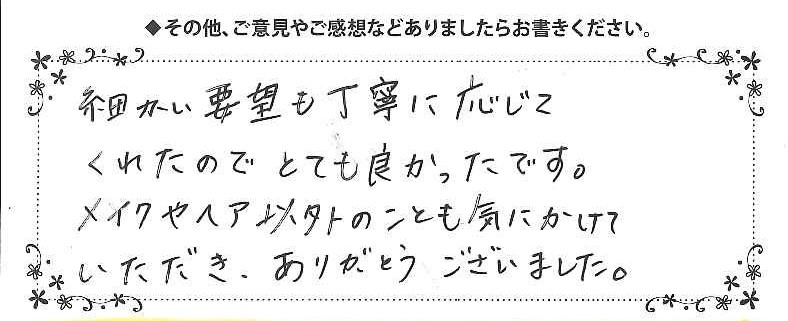 ◆その他、ご意見やご感想などありましたらお書きください。
細かい要望も丁寧に応じて
くれたので とても良かったです。
メイクやヘア以外のことも気にかけて
いただき、ありがとうございました。